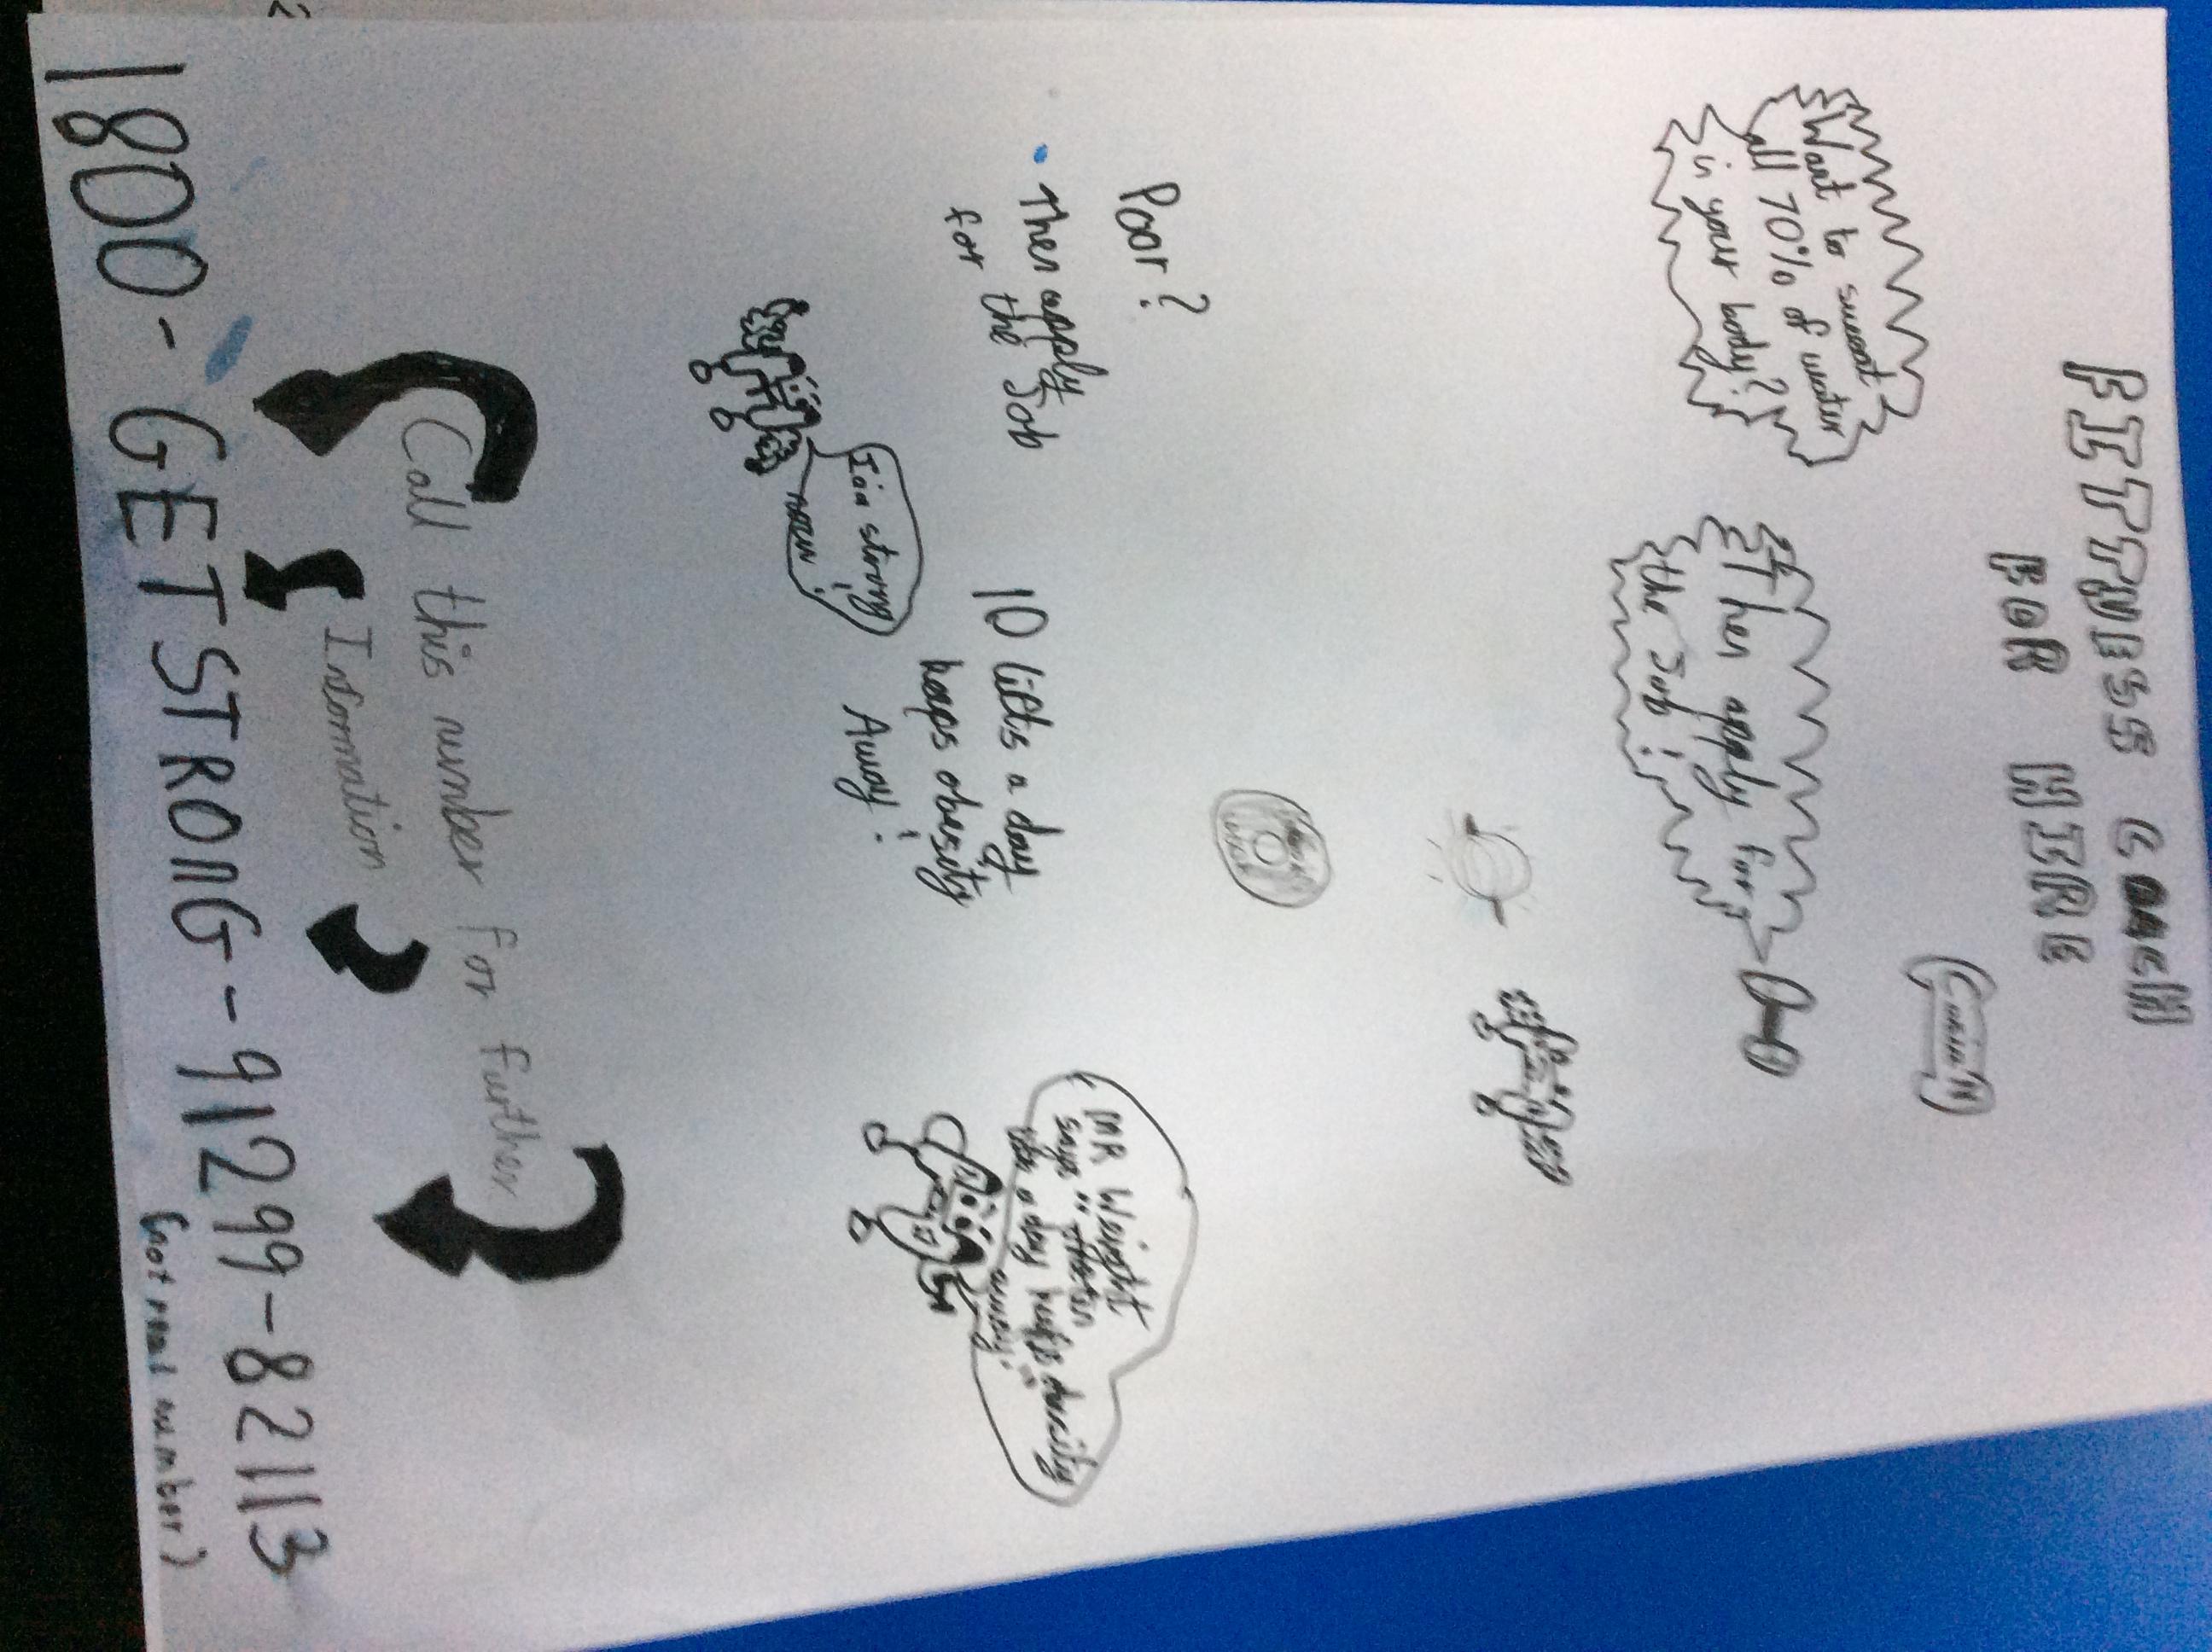 FITTNESS COACH
FOR HIRE
Want to sweat
all 70% of water
is your body?
Then apply for
the Job!
Poor?
Then apply
for the Job
10 lifts a day
keeps obesity
Away!
I'm strong
now!
MR Weight
says "
a day
away!"
Call this number For Further
Information
1800-GETSTRONG-91299-82113
(not real number)